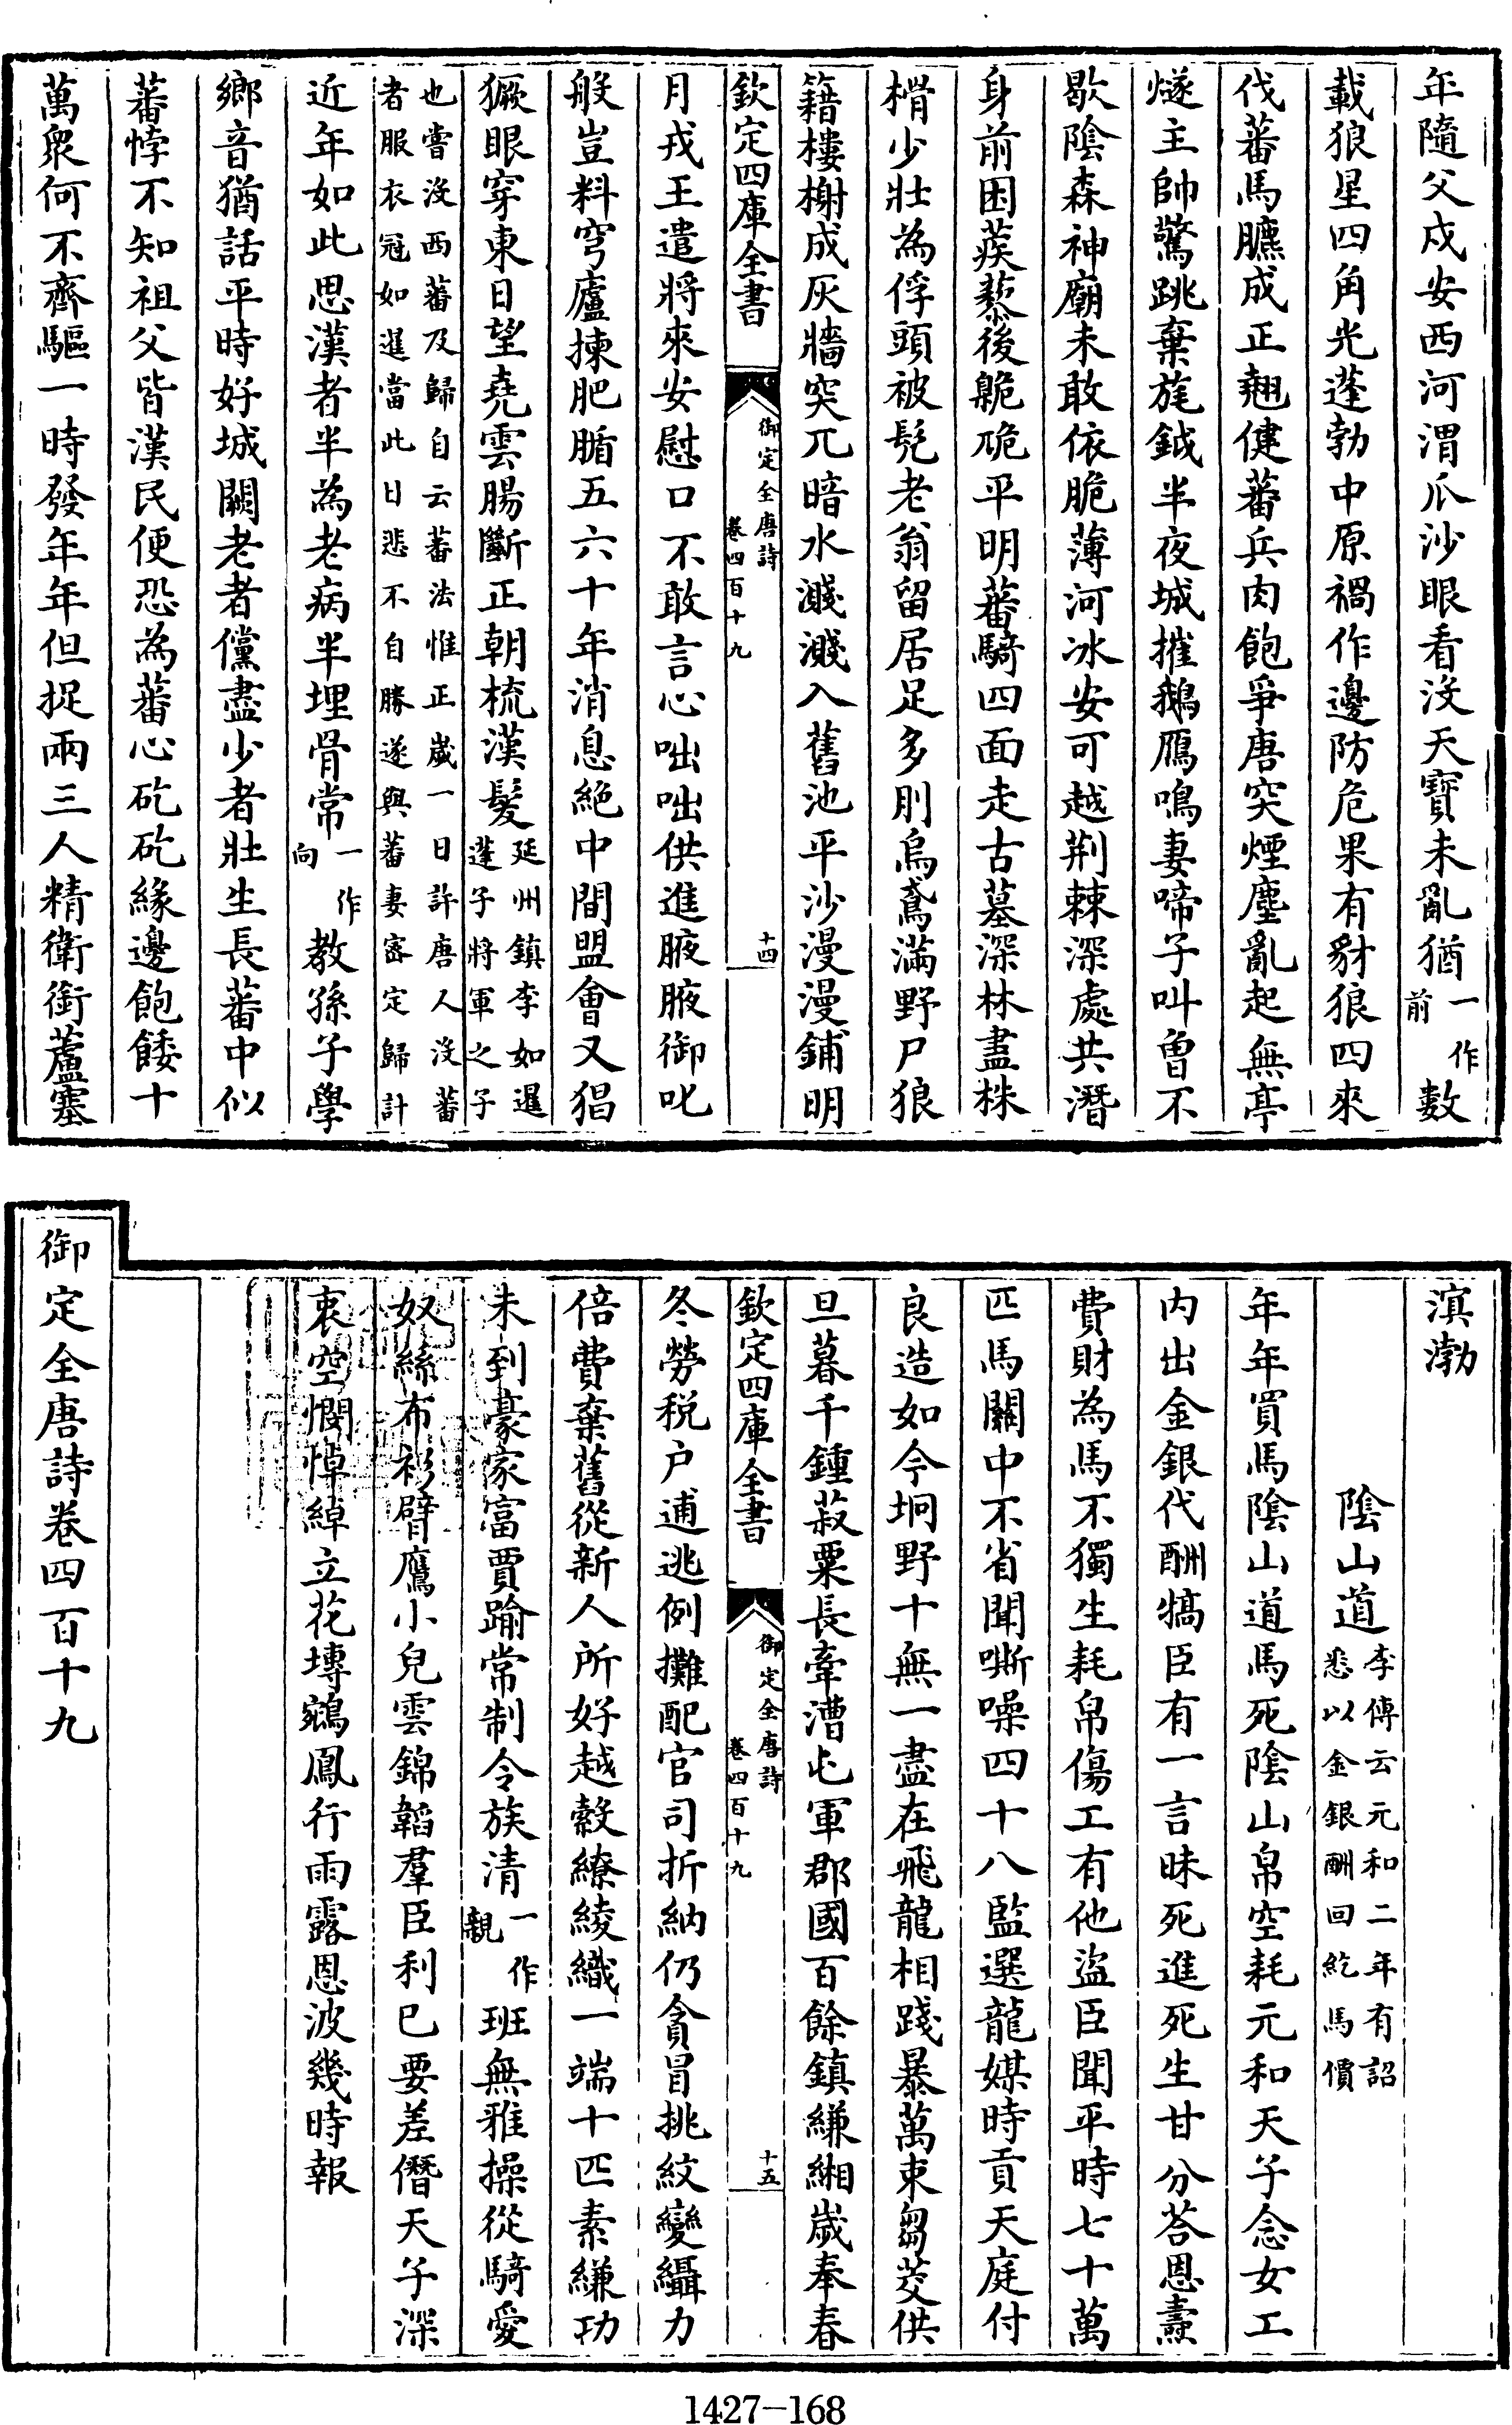 年隨父戍安西河渭瓜沙眼看沒天寶未亂猶一作前數
載狼星四角光蓬勃中原禍作邊防危果有豺狼四來
伐蕃馬臕成正翹健蕃兵肉飽爭唐突煙塵亂起無亭
燧主帥驚跳棄旄鉞半夜城摧鵝鴈鳴妻啼子叫曽不
歇陰森神廟未敢依脆薄河冰安可越荆棘深處共潛
身前困蒺藜後臲硊平明蕃騎四面走古墓深林盡株
榾少壯為俘頭被髡老翁留居足多刖烏鳶滿野尸狼
籍樓榭成灰牆突兀暗水濺濺入舊池平沙漫漫鋪明
欽定四庫全書
御定全唐詩
卷四百十九
十四
月戎王遣將來安慰口不敢言心咄咄供進腋腋御叱
般豈料穹廬揀肥腯五六十年消息絶中間盟會又猖
獗眼穿東日望堯雲腸斷正朝梳漢髮延州鎮李如暹
蓬子將軍之子
也嘗沒西蕃及歸自云蕃法惟正歲一日許唐人沒蕃
者服衣冠如暹當此日悲不自勝遂與蕃妻宻定歸計
近年如此思漢者半為老病半埋骨常一作向教孫子學
鄉音猶話平時好城闕老者儻盡少者壯生長蕃中似
蕃悖不知祖父皆漢民便恐為蕃心矻矻緣邊飽餧十
萬衆何不齊驅一時發年年但捉兩三人精衛銜蘆塞
溟渤
陰山道李傳云元和二年有詔
悉以金銀酬回紇馬價
年年買馬陰山道馬死陰山帛空耗元和天子念女工
内出金銀代酬犒臣有一言昧死進死生甘分荅恩燾
費財為馬不獨生耗帛傷工有他盜臣聞平時七十萬
匹馬關中不省聞嘶噪四十八監選龍媒時貢天庭付
良造如今坰野十無一盡在飛龍相踐暴萬束芻茭供
旦暮千鍾菽粟長牽漕屯軍郡國百餘鎮縑緗歲奉春
欽定四庫全書
御定全唐詩
卷四百十九
十五
冬勞税户逋逃例攤配官司折納仍貪冒挑紋變䌰力
倍費棄舊從新人所好越縠繚綾織一端十匹素縑功
未到豪家富賈踰常制令族清一作親班無雅操從騎愛
奴絲布衫臂鷹小兒雲錦韜羣臣利已要差僭天子深
衷空憫悼綽立花塼鵷鳳行雨露恩波幾時報
御定全唐詩卷四百十九
1427-168